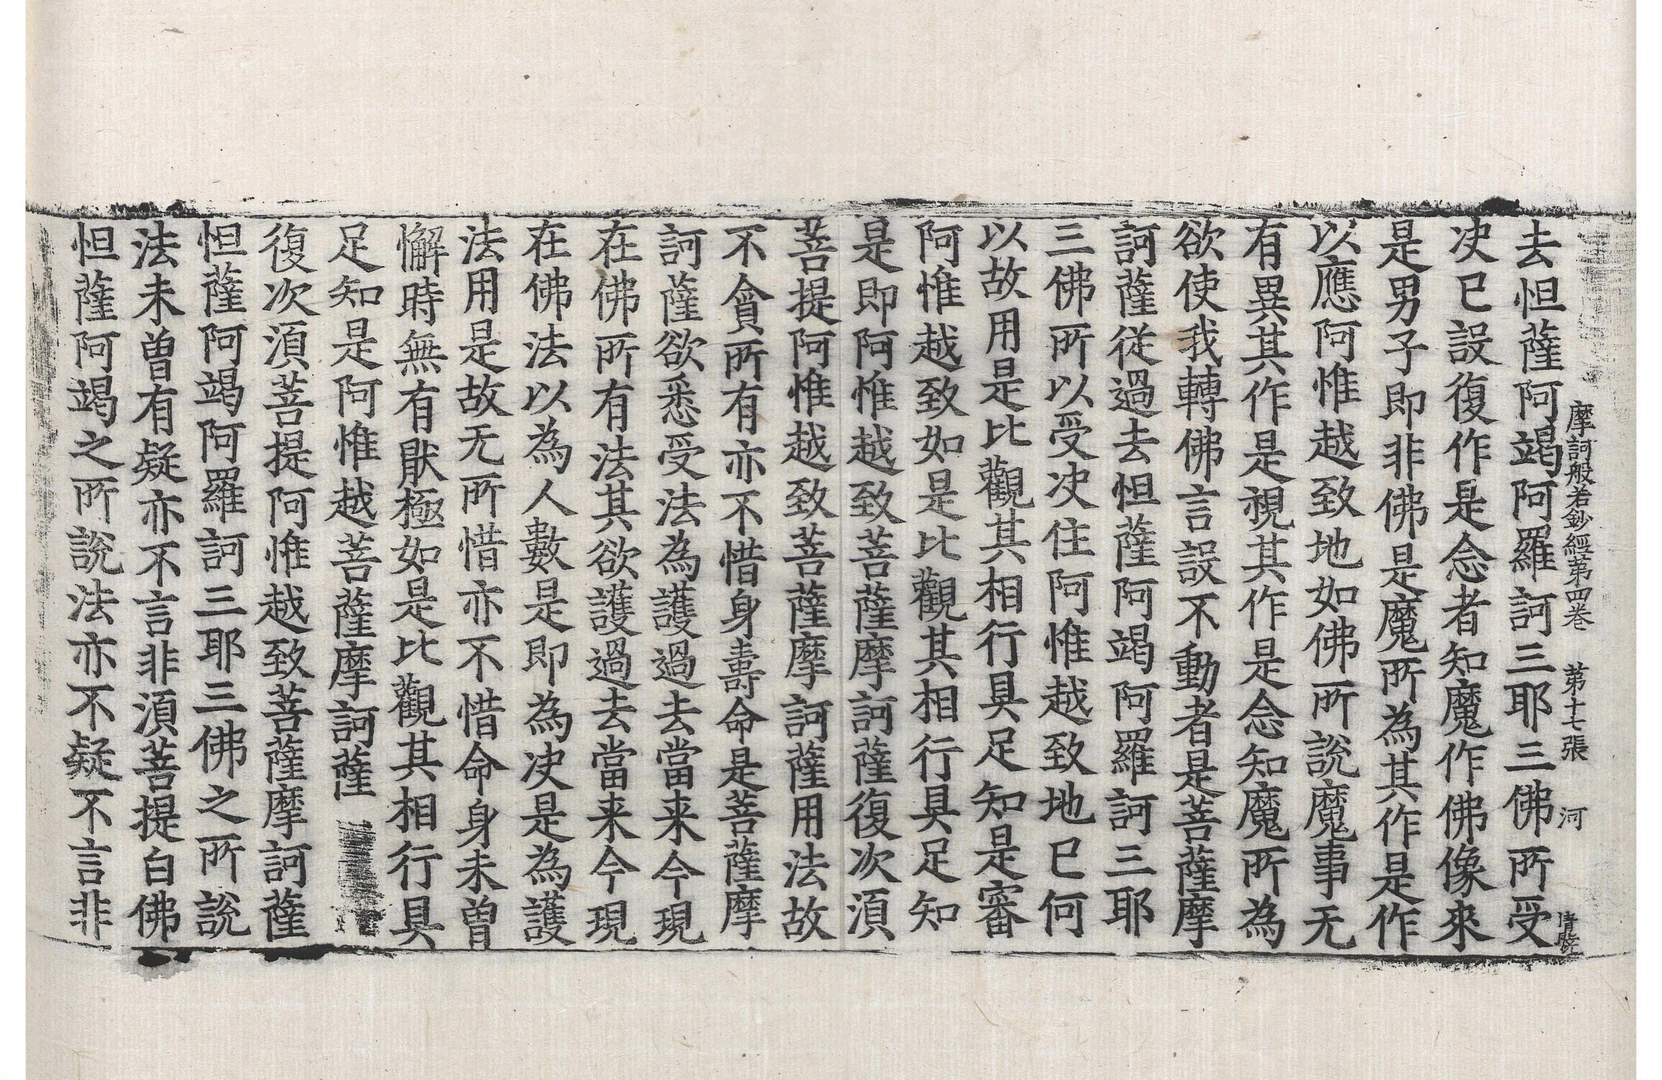 摩訶般若鈔經第四卷　第十七張　河
去怛薩阿竭阿羅訶三耶三佛所受
决已設復作是念者知魔作佛像來
是男子即非佛是魔所為其作是作
以應阿惟越致地如佛所說魔事无
有異其作是視其作是念知魔所為
欲使我轉佛言設不動者是菩薩摩
訶薩從過去怛薩阿竭阿羅訶三耶
三佛所以受决住阿惟越致地已何
以故用是比觀其相行具足知是審
阿惟越致如是比觀其相行具足知
是即阿惟越致菩薩摩訶薩復次湏
菩提阿惟越致菩薩摩訶薩用法故
不貪所有亦不惜身壽命是菩薩摩
訶薩欲悉受法為護過去當来今現
在佛所有法其欲護過去當来今現
在佛法以為人數是即為决是為護
法用是故无所惜亦不惜命身未曾
懈時無有猒極如是比觀其相行具
足知是阿惟越菩薩摩訶薩
復次湏菩提阿惟越致菩薩摩訶薩
怛薩阿竭阿羅訶三耶三佛之所說
法未曾有疑亦不言非湏菩提白佛
怛薩阿竭之所說法亦不疑不言非